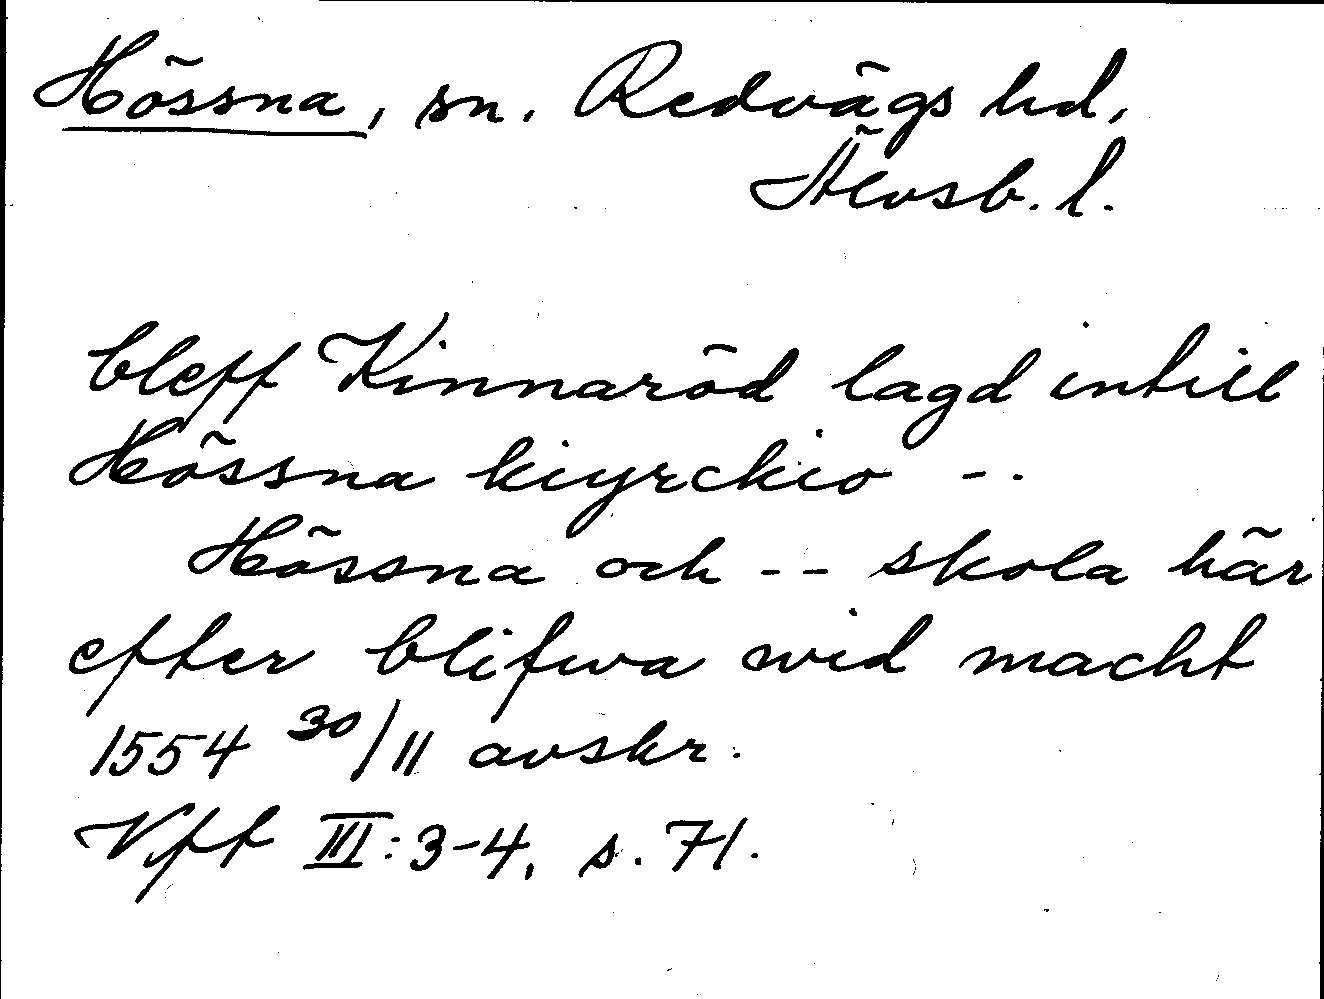 Hössna, sn. Redvägs hd,
Älvsb. l.
bleff Kinnaröd lagd intill
Hössna kiyrckio --
Hössna och -- skola här
efter blifwa wid macht
1554 30/11 avskr.
Vfft III:3-4, s. 71.